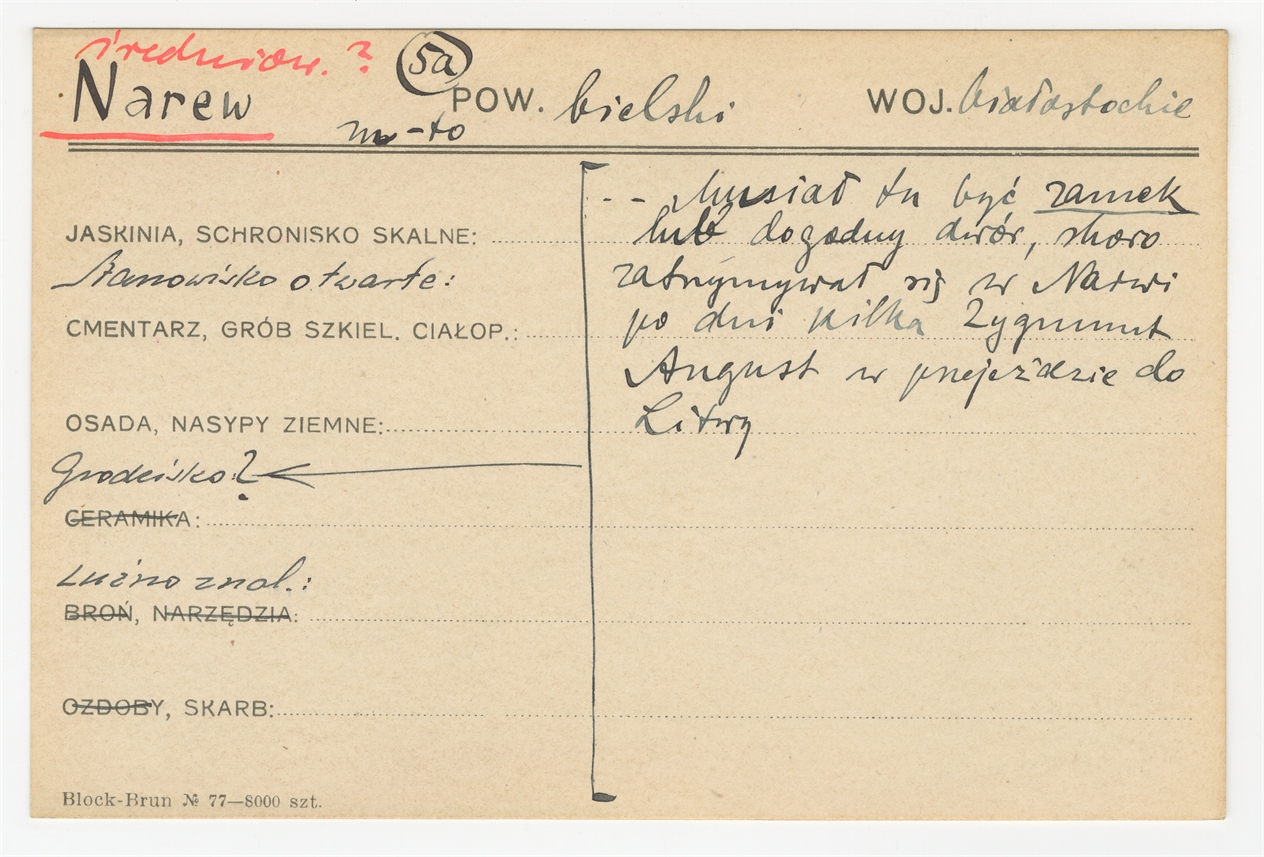 średniow. ? 5a
Narew POW. bielski WOJ. białostockie
m-to
-- Musiał tu być zamek
JASKINIA, SCHRONISKO SKALNE: lub dogodny dwór, skoro
Stanowisko otwarte: zatrzymywał się w Narwi
CMENTARZ, GRÓB SZKIEL. CIAŁOP.: po dni kilka Zygmunt
August w przejeździe do
OSADA, NASYPY ZIEMNE: Litwy
Grodzisko?
CERAMIKA:
Luźno znal.:
BROŃ, NARZĘDZIA:
OZDOBY, SKARB:
Block-Brun № 77—8000 szt.